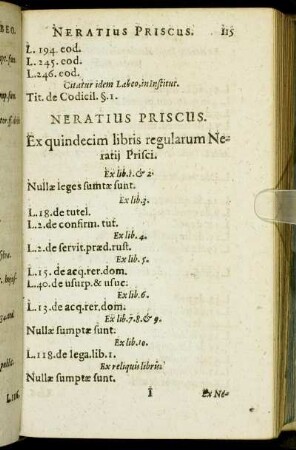 NERATIUS PRISCUS. 115
L. 194. eod.
L. 245. eod.
L. 246. eod.
Citatur idem Labeo, in Institut.
Tit. de Codicil. §. 1.
NERATIUS PRISCUS.
Ex quindecim libris regularum Ne-
ratij Prisci.
Ex lib. 1. & 2.
Nullæ leges sumtæ sunt.
Ex lib. 3.
L. 18. de tutel.
L. 2. de confirm. tut.
Ex lib. 4.
L. 2. de servit. præd. rust.
Ex lib. 5.
L. 15. de acq. rer. dom.
L. 40. de usurp. & usuc.
L. 13. de acq. rer. dom.
Ex lib. 6.
Ex lib. 7. 8. & 9.
Nullæ sumptæ sunt.
Ex lib. 10.
L. 118. de lega. lib. 1.
Ex reliquis libris.
Nullæ sumptæ sunt.
I Ex Ne-